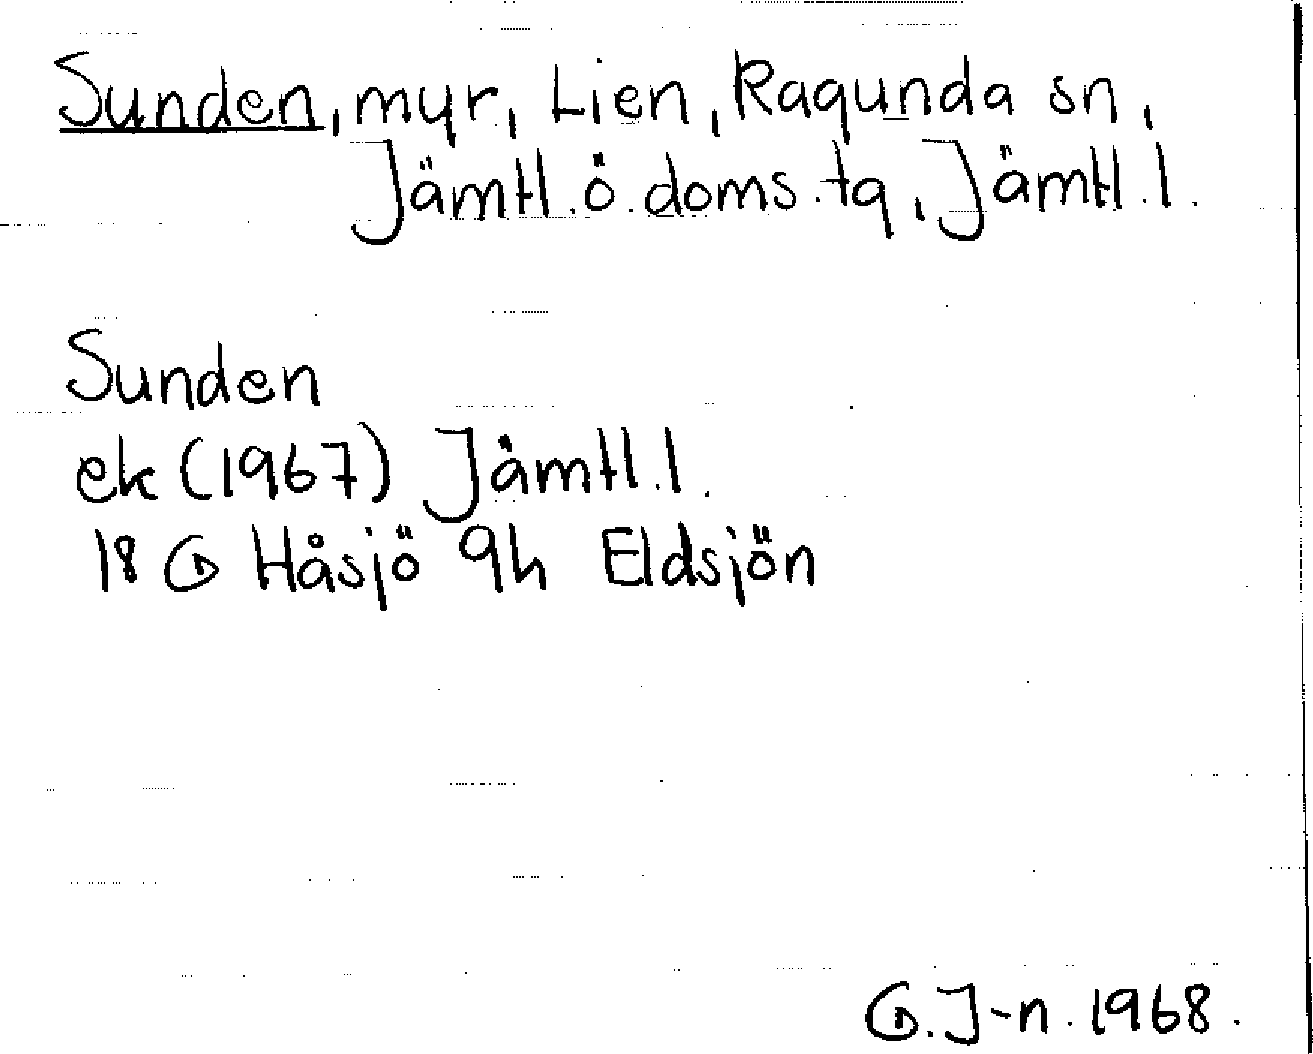 Sunden, myr, Lien, Ragunda sn,
Jämtl. ö. doms. tg, Jämtl. l.
Sunden
ek (1967) Jämtl. l.
18 G Håsjö 9h Eldsjön
G. J-n. 1968.